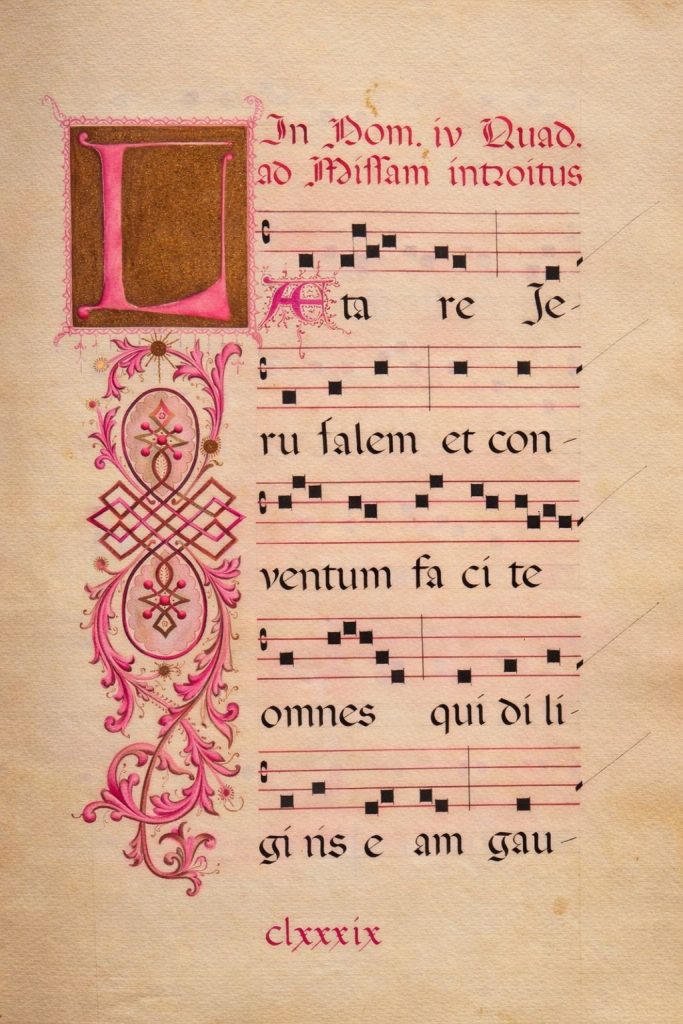 In Dom. iv Quad.
ad Miſſam introitus
LÆta re Je-
ru ſalem et con-
ventum fa ci te
omnes qui di li-
gi tis e am gau-
clxxxix